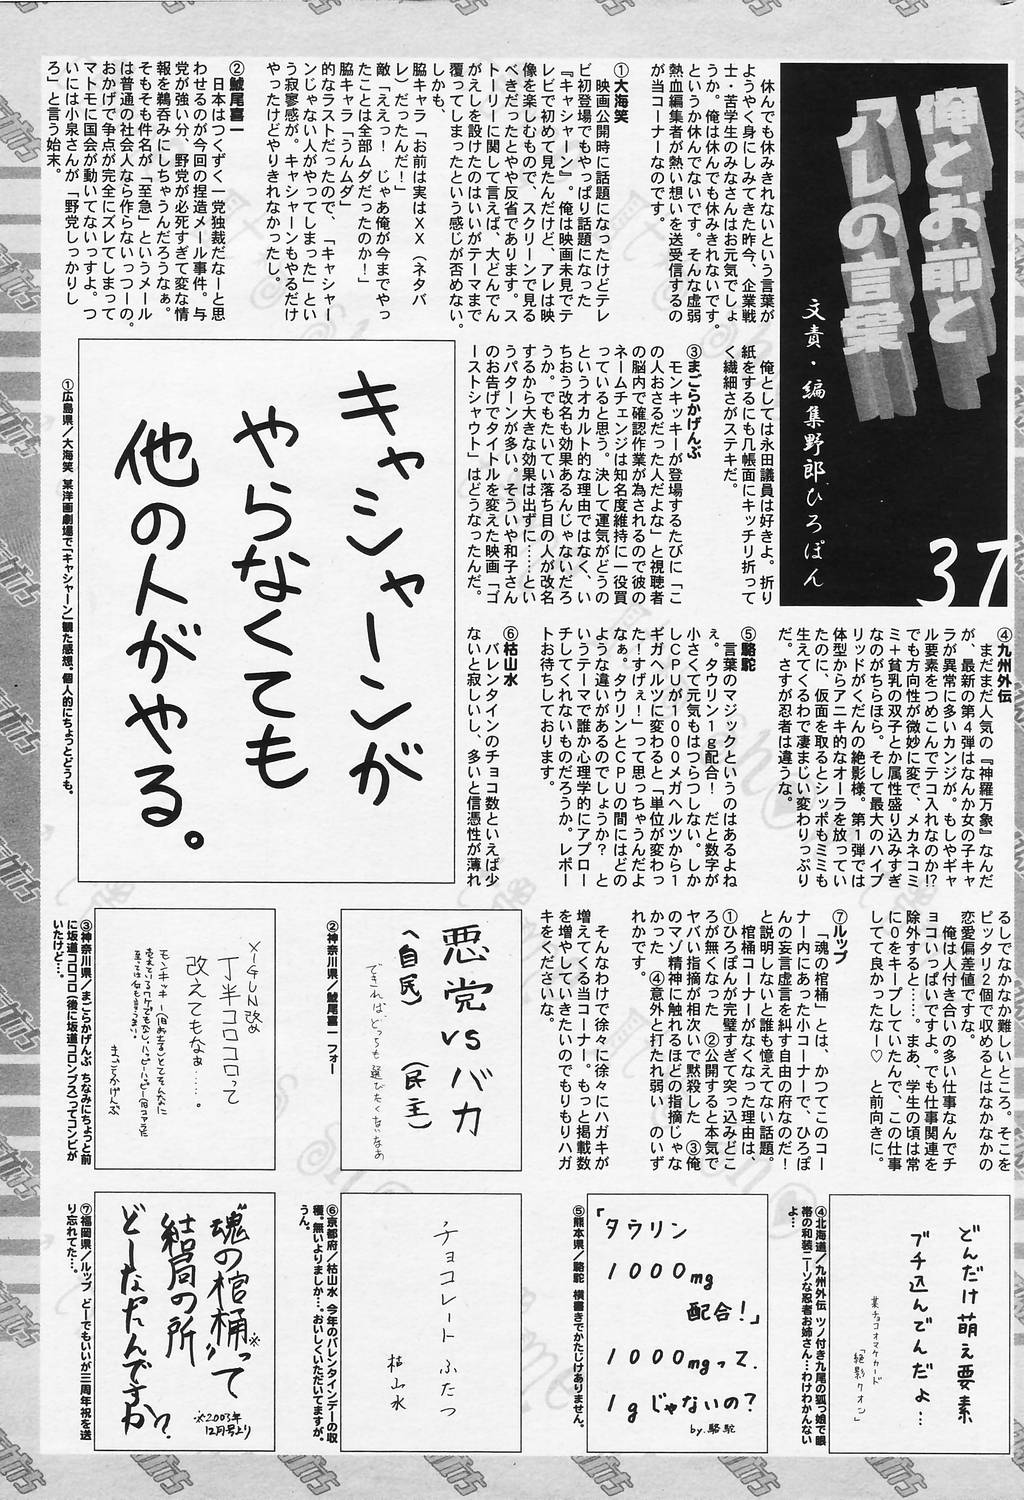 俺とお前と
アレの言葉
文責・編集野郎ひろぽん
37
休んでも休みきれないという言葉が
ようやく身にしみてきた昨今、企業戦
士・苦学生のみなさんはお元気でしょ
うか。俺は休んでも休みきれないです。
というか休んでないです。そんな虚弱
熱血編集者が熱い想いを送受信するの
が当コーナーなのです。
①大海笑
映画公開時に話題になったけどテレ
ビ初登場でもやっぱり話題になった
『キャシャーン』。俺は映画未見でテ
レビで初めて見たんだけど、アレは映
像を楽しむもので、スクリーンで見る
べきだったとやや反省であります。ス
トーリーに関して言えば、大どんでん
がえしを設けたのはいいがテーマまで
覆ってしまったという感じが否めない。
しかも、
脇キャラ「お前は実はXX(ネタバ
レ)だったんだ!」
敵「ええっ! じゃあ俺が今までやっ
たことは全部ムダだったのか!」
脇キャラ「うんムダ」
的なラストだったので、「キャシャー
ンじゃない人がやってしまった」とい
う寂寥感が。キャシャーンもやるだけ
やったけどやりきれなかったし。
②鯱尾喜一
日本はつくづく一党独裁だなーと思
わせるのが今回の捏造メール事件。与
党が強い分、野党が必死すぎて変な情
報を鵜呑みにしちゃうんだろうなぁ。
そもそも件名が「至急」というメール
は普通の社会人なら作らないっつーの。
おかげで争点が完全にズレてしまって
マトモに国会が動いてないっすよ。つ
いには小泉さんが「野党しっかりし
ろ」と言う始末。
俺としては永田議員は好きよ。折り
紙をするにも几帳面にキッチリ折って
く繊細さがステキだ。
③まごらかげんぶ
モンキッキーが登場するたびに「こ
の人おさるだった人だよな」と視聴者
の脳内で確認作業が為されるので彼の
ネームチェンジは知名度維持に一役買
っていると思う。決して運気がどうの
というオカルト的な理由ではなく、い
ちおう改名も効果あるんじゃないだろ
うか。でもたいてい落ち目の人が改名
するから大きな効果は出ずに……とい
うパターンが多い。そういや和子さん
のお告げでタイトルを変えた映画「ゴ
ーストシャウト」はどうなったんだ。
キャシャーンが
やらなくても
他の人がやる。
①広島県/大海笑 某洋画劇場で「キャシャーン」観た感想。個人的にちょっとどうも。
④九州外伝
まだまだ人気の『神羅万象』なんだ
が、最新の第4弾はなんか女の子キャ
ラが異常に多いカンジが。もしやギャ
ル要素をつめこんでテコ入れなのか!?
でも方向性が微妙に変で、メカネコミ
ミ+貧乳の双子とか属性盛り込みすぎ
なのがちらほら。そして最大のハイブ
リッドがくだんの絶影様。第1弾では
体型からアニキ的なオーラを放ってい
たのに、仮面を取るとシッポもミミも
生えてくるわで凄まじい変わりっぷり
だ。さすが忍者は違うな。
⑤駱駝
言葉のマジックというのはあるよね
ぇ。タウリン1g配合! だと数字が
小さくて元気もはつらつしない。しか
しCPUが1000メガヘルツから1
ギガヘルツに変わると「単位が変わっ
た!すげぇ!」って思っちゃうんだよ
なぁ。タウリンとCPUの間にはどの
ような違いがあるのでしょうか? と
いうテーマで誰か心理学的にアプロー
チしてくれないものだろうか。レポー
トお待ちしております。
⑥枯山水
バレンタインのチョコ数といえば少
ないと寂しいし、多いと信憑性が薄れ
るしでなかなか難しいところ。そこを
ピッタリ2個で収めるとはなかなかの
恋愛偏差値ですな。
俺は人付き合いの多い仕事なんでチ
ョコいっぱいですよ。でも仕事関連を
除外すると……。まあ、学生の頃は常
に0をキープしていたんで、この仕事
してて良かったなー♡ と前向きに。
⑦ルップ
「魂の棺桶」とは、かつてこのコー
ナー内にあった小コーナーで、ひろぽ
んの妄言虚言を糾す自由の府なのだ!
と説明しないと誰も憶えてない話題。
棺桶コーナーがなくなった理由は、
①ひろぽんが完璧すぎて突っ込みどこ
ろが無くなった ②公開すると本気で
ヤバい指摘が相次いで黙殺した ③俺
のマゾ精神に触れるほどの指摘じゃな
かった ④意外と打たれ弱い のいず
れかです。
そんなわけで徐々に徐々にハガキが
増えてくる当コーナー。もっと掲載数
を増やしていきたいのでもりもりハガ
キをくださいな。
悪党vsバカ
(自民) (民主)
できればどっちも選びたくないなあ
②神奈川県/鯱尾喜一 フォー
メーGUN改め
丁半コロコロって
改えてもなぁ……。
まごらかげんぶ
③神奈川県/まごらかげんぶ ちなみにちょっと前
に坂道コロコロ(後に坂道コロンブス)ってコンビが
いたけど…。
どんだけ萌え要素
ブチ込んでんだよ…
某チョコオマケカード
「絶影クオン」
④北海道/九州外伝 ツノ付き九尾の狐っ娘で眼
帯の和装ニーソな忍者お姉さん…わけわかんない
よ…
「タウリン
1000mg
配合!」
1000mgって、
1gじゃないの?
by.駱駝
⑤熊本県/駱駝 横書きでかたじけありません。
チョコレートふたつ
枯山水
⑥京都府/枯山水 今年のバレンタインデーの収
穫。無いよりましか…。おいしくいただいてますが。
うん。
"魂の棺桶"※って
結局の所
どーなったんですか?
※2003年
12月号より
⑦福岡県/ルップ どーでもいいが三周年祝を送
り忘れてた…。